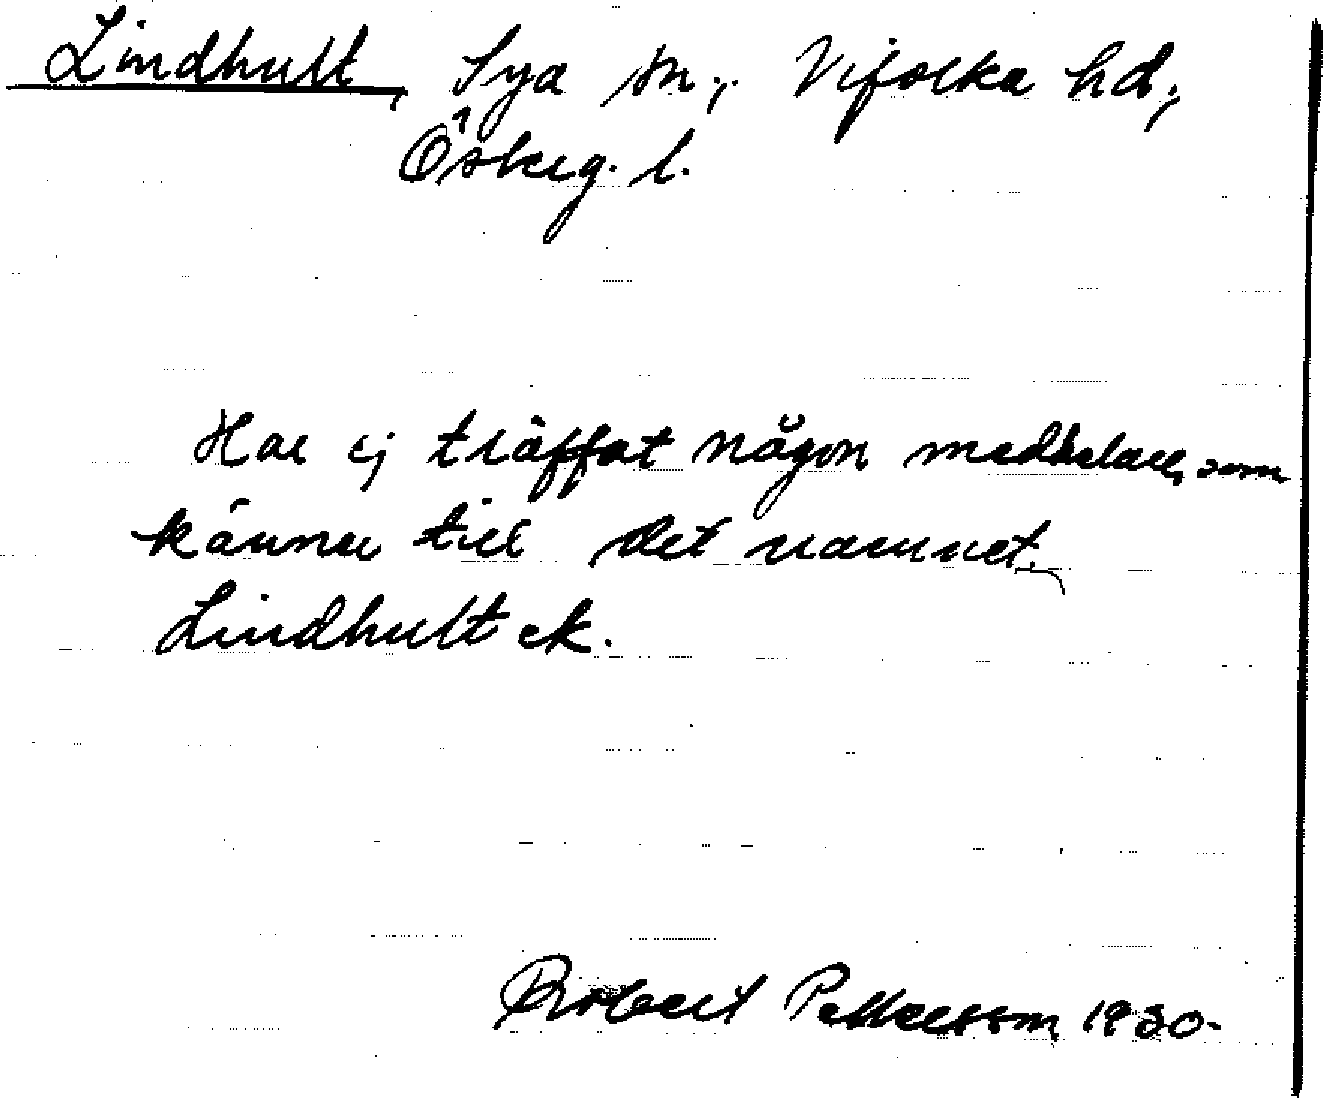 Lindhult, Sya sn, Vifolka hd,
Österg. l.
Har ej träffat någon meddelare, som
känner till det namnet.
Lindhult ek.
Robert Pettersson 1930.